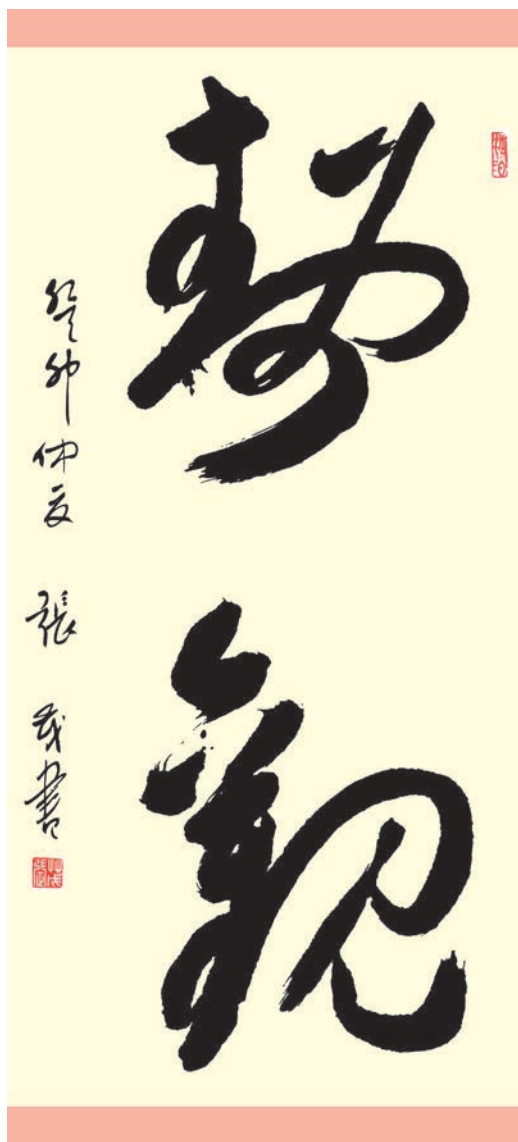 靜觀
癸卯仲夏 張 茂書